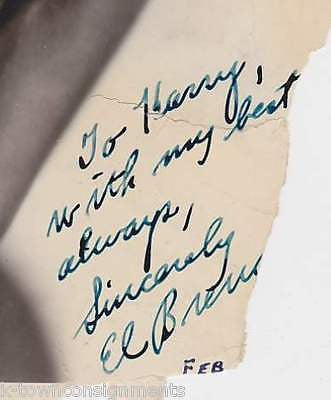 To Harry,
with my best
always,
Sincerely
El Bren
FEB
k-townconsignments